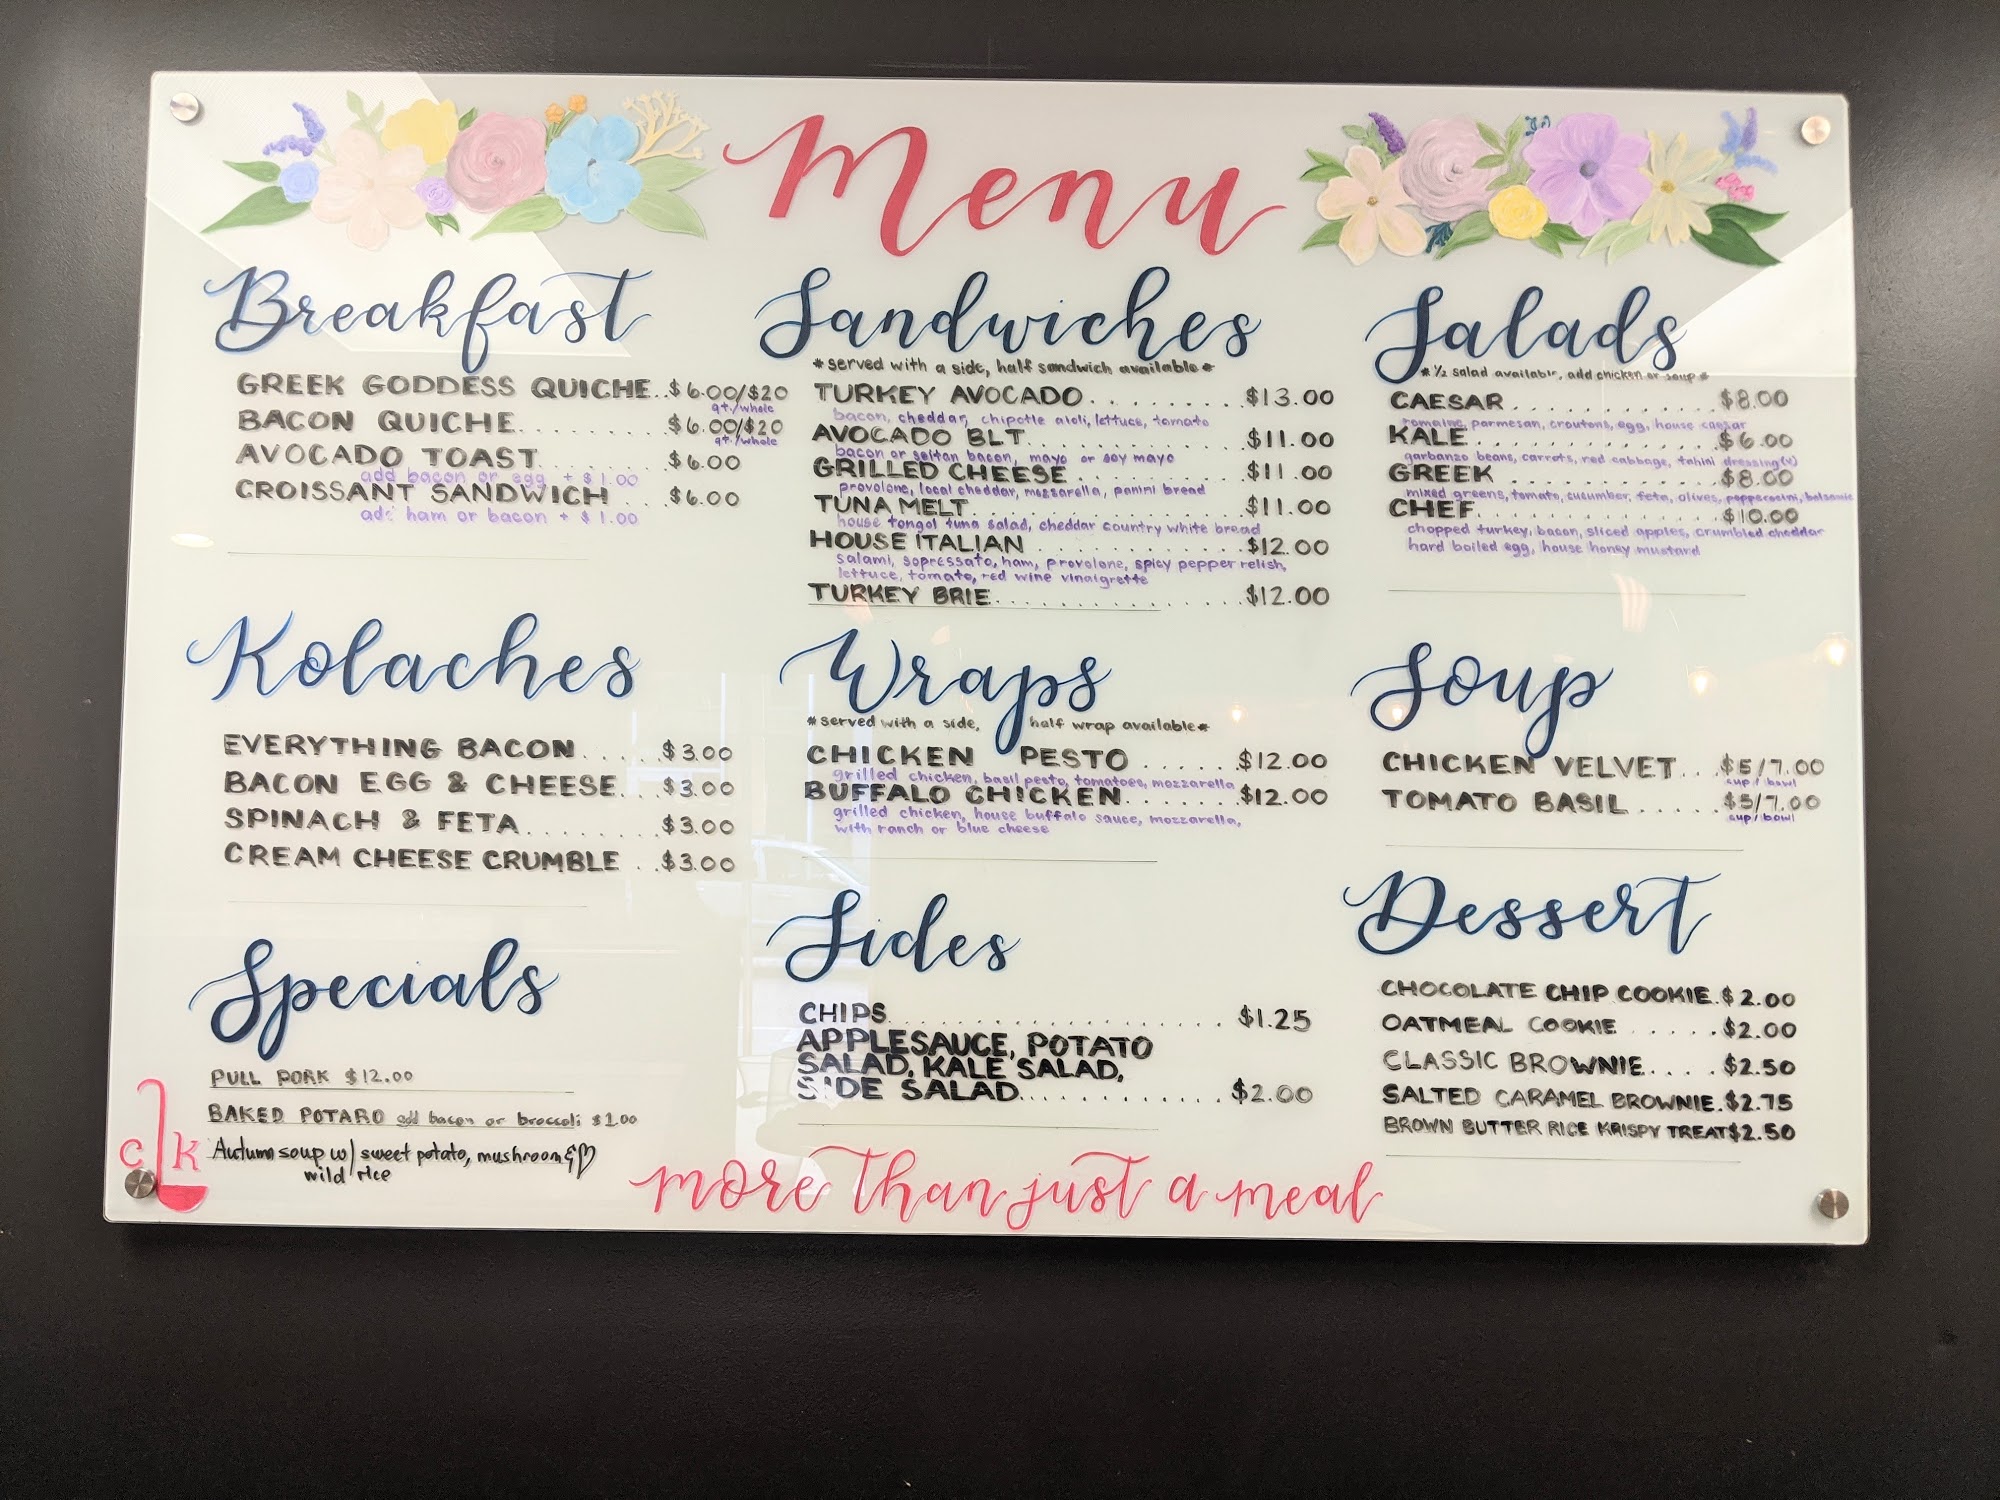 Menu
Breakfast
GREEK GODDESS QUICHE..$6.00/$20
qt./whole
BACON QUICHE........$6.00/$20
qt./whole
AVOCADO TOAST.......$6.00
add bacon or egg + $1.00
CROISSANT SANDWICH ..$6.00
add ham or bacon + $1.00
Kolaches
EVERYTHING BACON.....$3.00
BACON EGG & CHEESE...$3.00
SPINACH & FETA........$3.00
CREAM CHEESE CRUMBLE ..$3.00
Specials
PULL PORK $12.00
BAKED POTARO add bacon or broccoli $1.00
Autumn soup w/ sweet potato, mushroom &
wild rice
CLK
Sandwiches
*served with a side, half sandwich available*
TURKEY AVOCADO........$13.00
bacon, cheddar, chipotle aioli, lettuce, tomato
AVOCADO BLT...........$11.00
bacon or seitan bacon, mayo or soy mayo
GRILLED CHEESE.........$11.00
provolone, local cheddar, mozzarella, panini bread
TUNA MELT.............$11.00
house tongol tuna salad, cheddar country white bread
HOUSE ITALIAN..........$12.00
salami, sopressato, ham, provolone, spicy pepper relish,
lettuce, tomato, red wine vinaigrette
TURKEY BRIE............$12.00
Wraps
*served with a side, half wrap available*
CHICKEN PESTO......$12.00
grilled chicken, basil pesto, tomatoes, mozzarella
BUFFALO CHICKEN.......$12.00
grilled chicken, house buffalo sauce, mozzarella,
with ranch or blue cheese
Sides
CHIPS..................$1.25
APPLESAUCE, POTATO
SALAD, KALE SALAD,
SIDE SALAD............$2.00
Salads
*½ salad available, add chicken or soup*
CAESAR...........$8.00
romaine, parmesan, croutons, egg, house caesar
KALE.............$6.00
garbanzo beans, carrots, red cabbage, tahini dressing(v)
GREEK............$8.00
mixed greens, tomato, cucumber, feta, olives, pepperocini, balsamic
CHEF.............$10.00
chopped turkey, bacon, sliced apples, crumbled cheddar
hard boiled egg, house honey mustard
Soup
CHICKEN VELVET...$5/7.00
cup/bowl
TOMATO BASIL.....$5/7.00
cup/bowl
Dessert
CHOCOLATE CHIP COOKIE.$2.00
OATMEAL COOKIE......$2.00
CLASSIC BROWNIE.....$2.50
SALTED CARAMEL BROWNIE.$2.75
BROWN BUTTER RICE KRISPY TREAT$2.50
more than just a meal